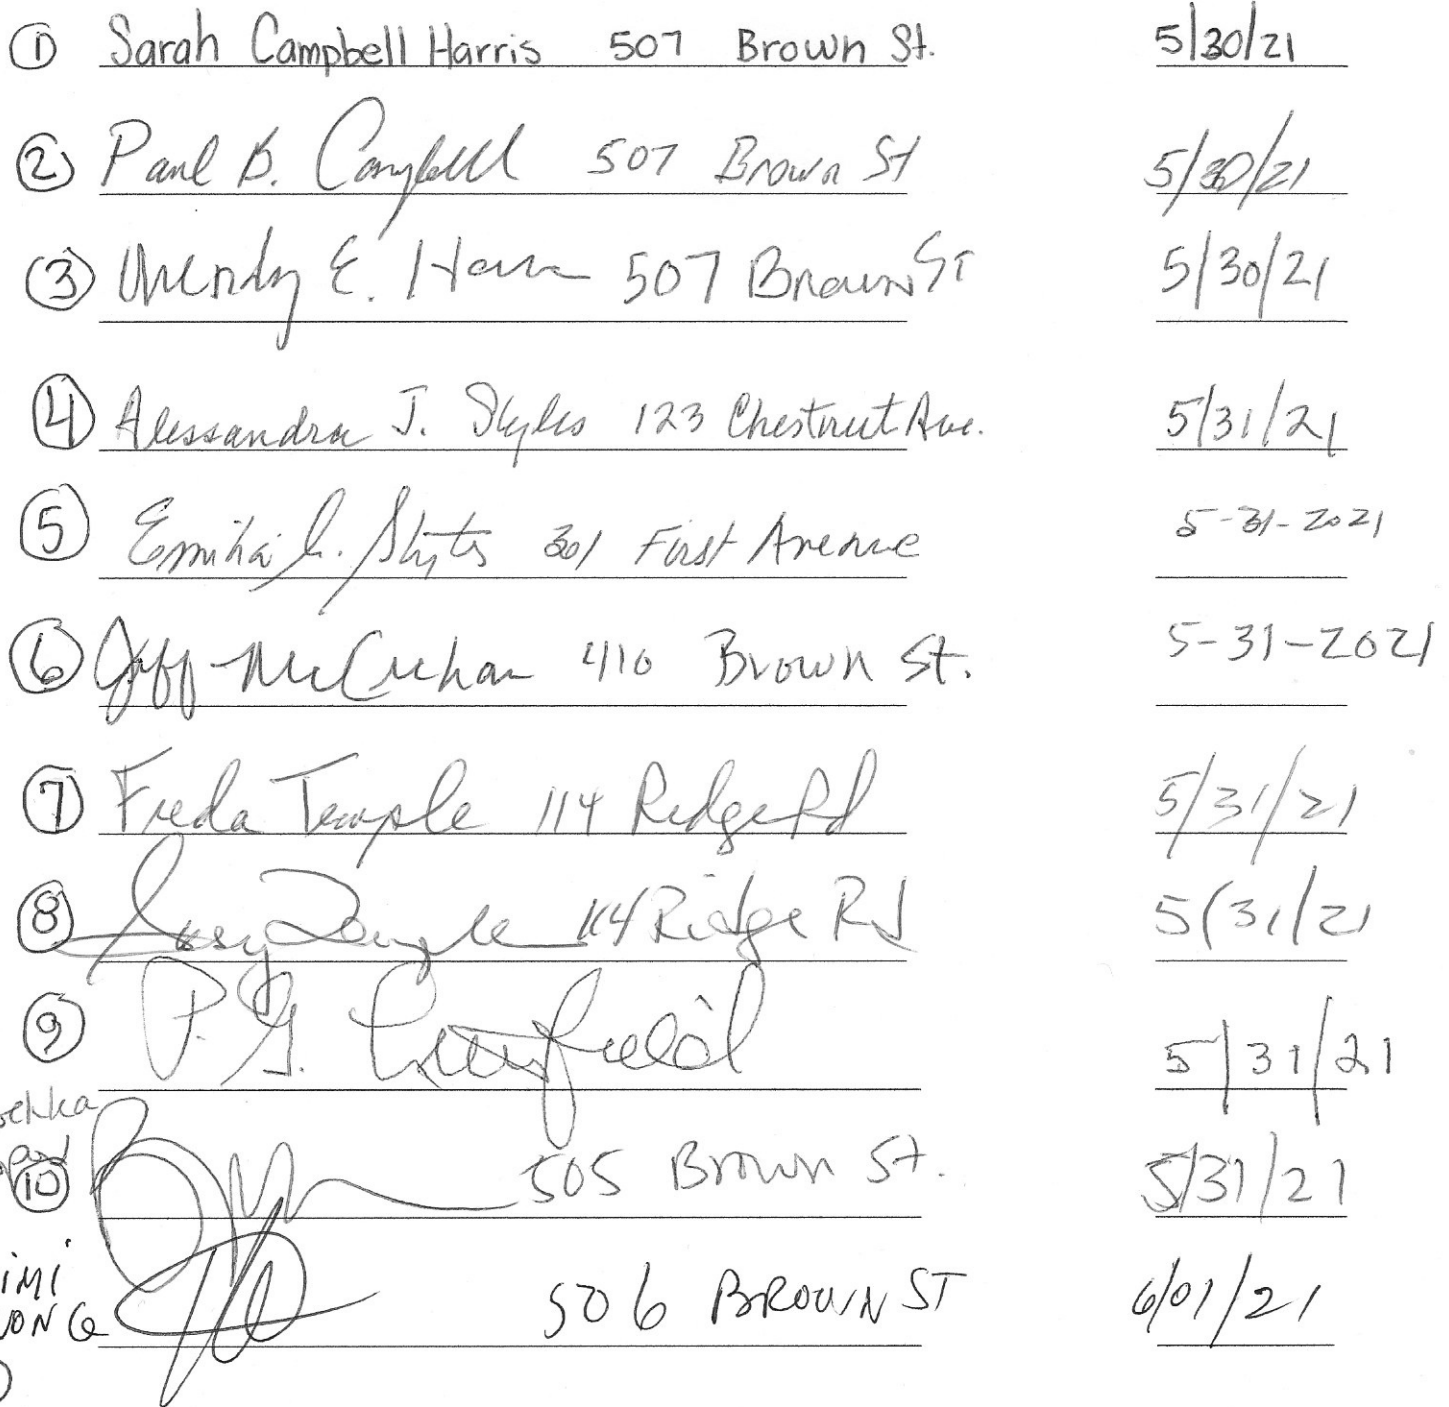 ① Sarah Campbell Harris 507 Brown St. 5/30/21
② Paul B. Campbell 507 Brown St 5/30/21
③ Wendy E. 507 Brown St 5/30/21
④ Alessandra J. Styles 123 Chestnut Ave. 5/31/21
⑤ 301 First Avenue 5-31-2021
⑥ Jeff 410 Brown St. 5-31-2021
⑦ Freda Temple 114 Ridge Rd 5/31/21
⑧ Temple 114 Ridge Rd 5/31/21
⑨ P. G. 5/31/21
⑩ 505 Brown St. 5/31/21
506 BROWN ST 6/01/21